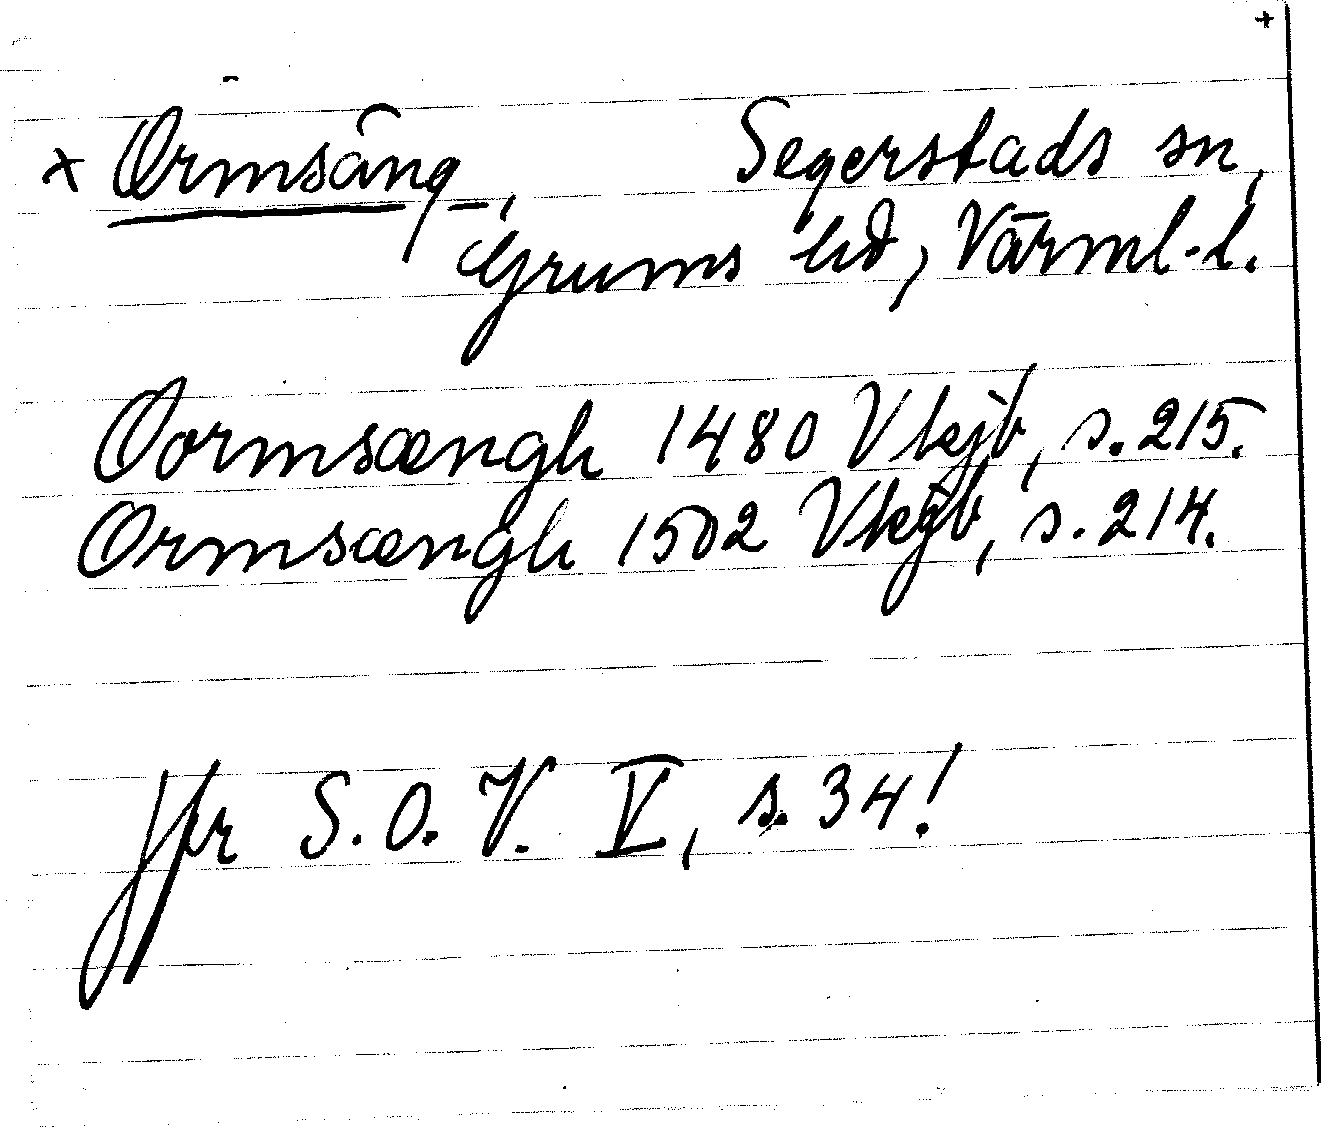 +
x Ormsäng, Segerstads sn,
Grums hd, Värml. l.
Oormsængh 1480 Vkjb, s. 215.
Ormsængh 1502 Vkjb, s. 214.
Jfr S. O. V. V, s. 34!